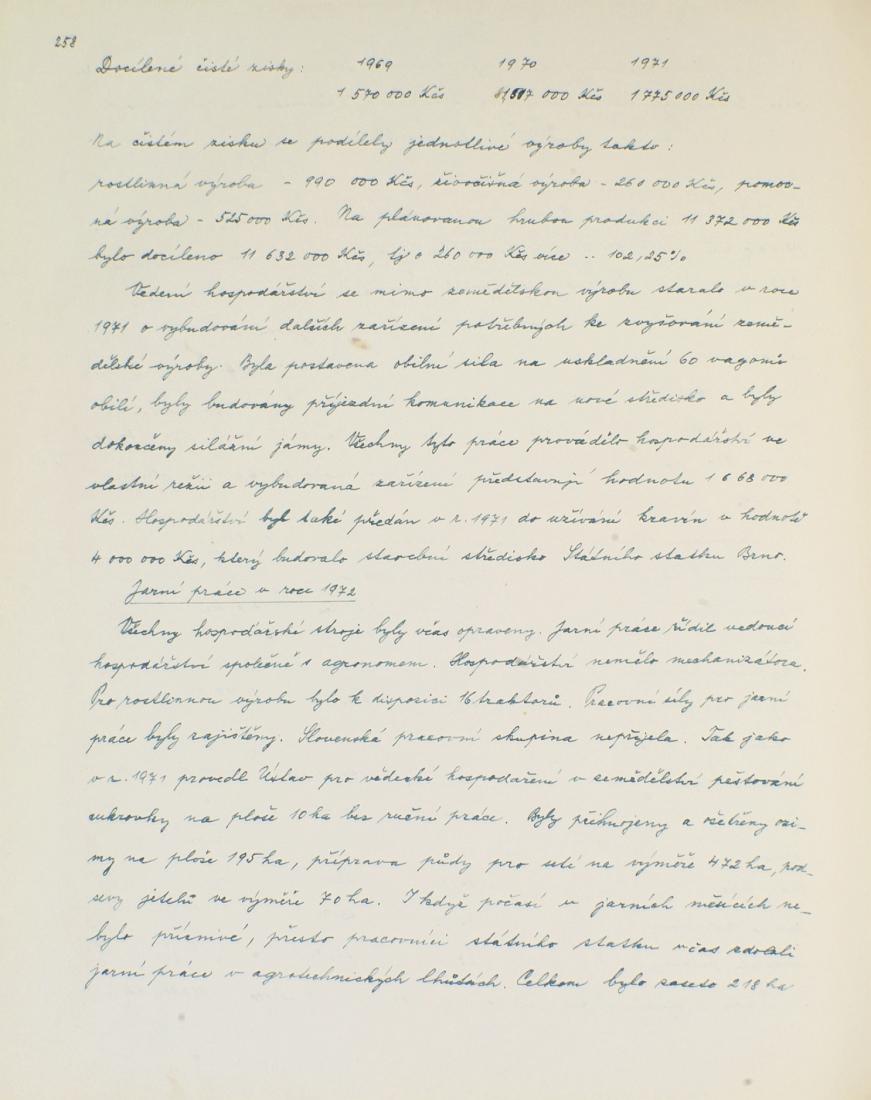 258
Docílené čisté zisky: 1969 1970 1971
1 570 000 Kčs 000 Kčs 1 775 000 Kčs
Na čistém zisku se podílely jednotlivé výroby takto:
rostlinná výroba - 990 000 Kčs, živočišná výroba - 260 000 Kčs, pomoc-
ná výroba - 525 000 Kčs. Na plánovanou hrubou produkci 11 372 000 Kčs
bylo docíleno 11 632 000 Kčs, tj o 260 000 Kčs více .. 102,25%
Vedení hospodářství se mimo zemědělskou výrobu staralo v roce
1971 o vybudování dalších zařízení potřebných ke zvyšování země-
dělské výroby. Byla postavena obilní sila na uskladnění 60 vagonů
obilí, byly budovány příjezdní komunikace na nové středisko a byly
dokončeny silážní jámy. Všechny tyto práce provádělo hospodářství ve
vlastní režii a vybudovaná zařízení představují hodnotu 1 668 000
Kčs. Hospodářství byl také předán v r. 1971 do užívání kravín v hodnotě
4 000 000 Kčs, který budovalo stavební středisko Státního statku Brno.
Jarní práce v roce 1972
Všechny hospodářské stroje byly včas opraveny. Jarní práse řídil vedoucí
hospodářství společně s agronomem. Hospodářství nemělo mechanizátora.
Pro rostlinnou výrobu bylo k disposici 16 traktorů. Pracovní síly pro jarní
práce byly zajištěny. Slovenská pracovní skupina nepřijela. Tak jako
v r. 1971 provedl Ústav pro vědecké hospodaření v zemědělství pěstování
cukrovky na ploše 10 ha bez ruční práce. Byly přihnojeny a ošetřeny ozi-
my na ploše 195 ha, příprava půdy pro setí na výměře 472 ha, pod-
sevy jetelů ve výměře 70 ha. I když počasí v jarních měsících ne-
bylo příznivé, přesto pracovníci státního statku včas zdolali
jarní práce v agrotechnických lhůtách. Celkom bylo zaseto 218 ha